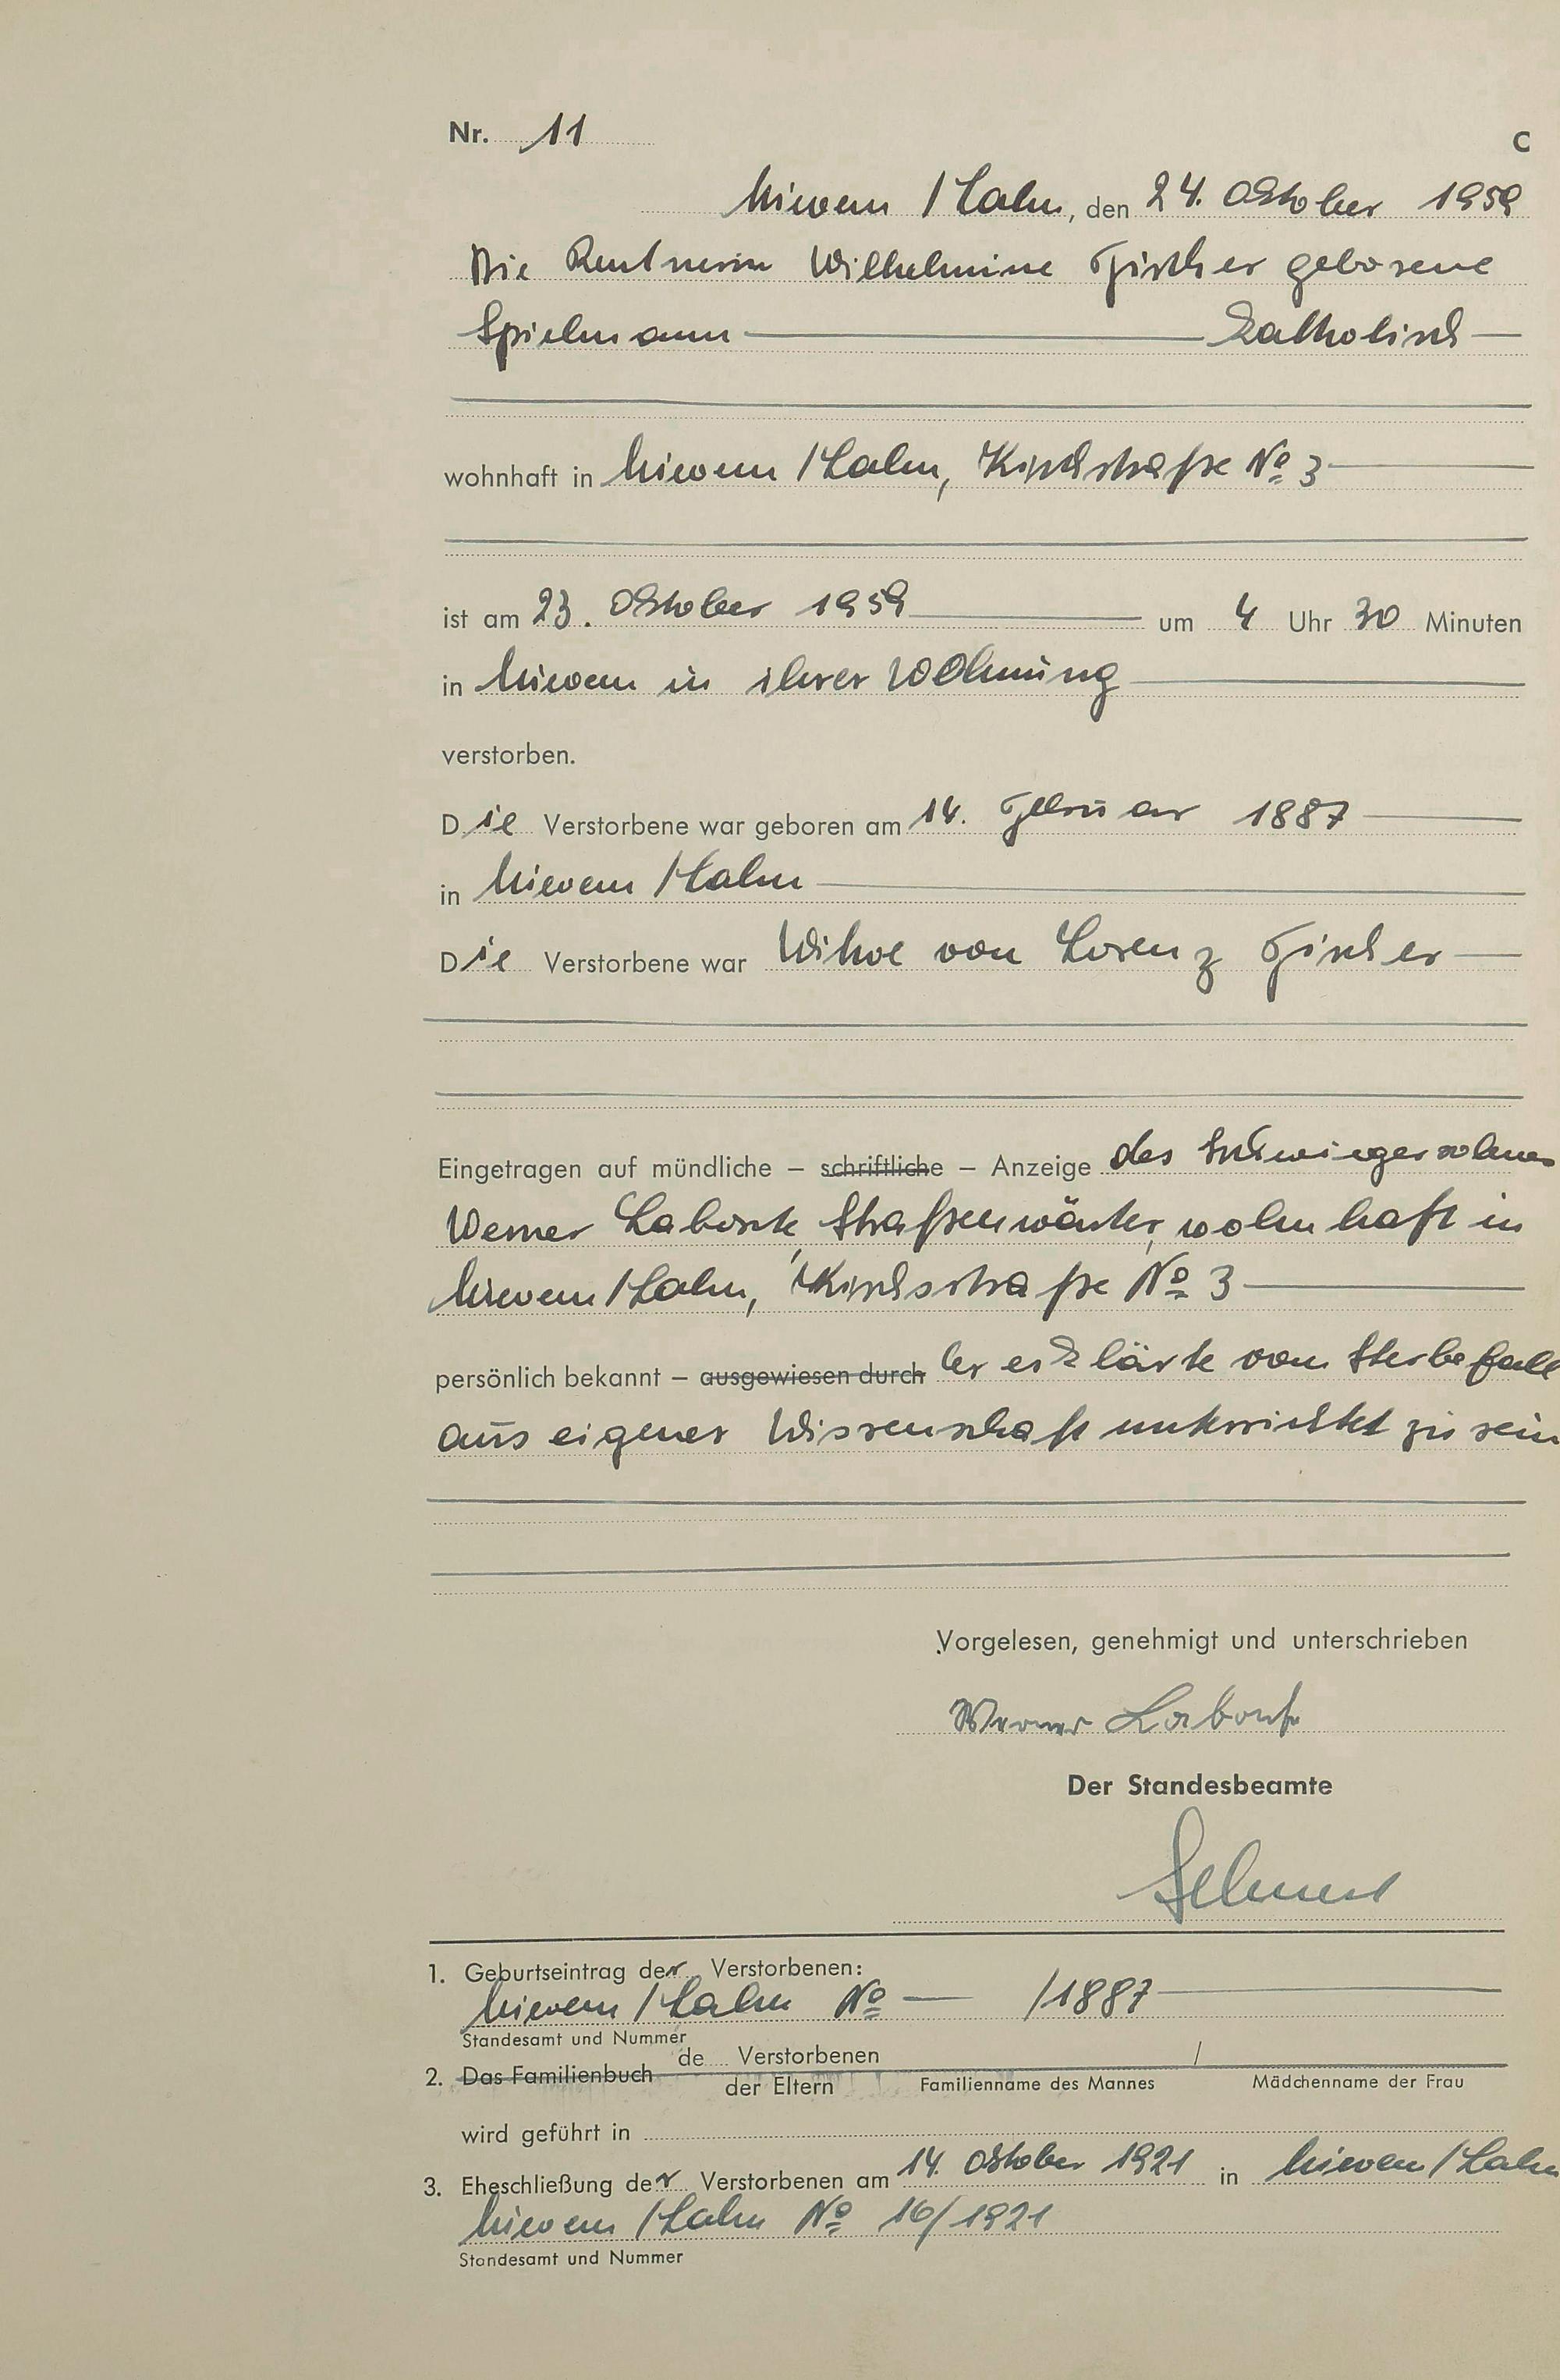 Nr. 11
C
Miellen /Lahn, den 24. Oktober 1959
Die Rentnerin Wilhelmine Fischer geborene
Spielmann katholisch
wohnhaft in /Lahn, Kirchstraße No 3
ist am 23. Oktober 1959 um 4 Uhr 30 Minuten
in in ihrer Wohnung
verstorben.
Die Verstorbene war geboren am 14. Februar 1887
in /Lahn
Die Verstorbene war Witwe von Lorenz Fischer
Eingetragen auf mündliche – schriftliche – Anzeige des Schwiegersohnes
Werner Labonte, Straßenwärter, wohnhaft in
/Lahn, Kirchstraße No 3
persönlich bekannt – ausgewiesen durch Er erklärte vom Sterbefall
aus eigener Wissenschaft unterrichtet zu sein
Vorgelesen, genehmigt und unterschrieben
Werner Labonte
Der Standesbeamte
1. Geburtseintrag der Verstorbenen:
/Lahn No — /1887
Standesamt und Nummer
2. Das Familienbuch de Verstorbenen /
der Eltern Familienname des Mannes Mädchenname der Frau
wird geführt in
3. Eheschließung der Verstorbenen am 14. Oktober 1921 in /Lahn
/Lahn No 16/1921
Standesamt und Nummer